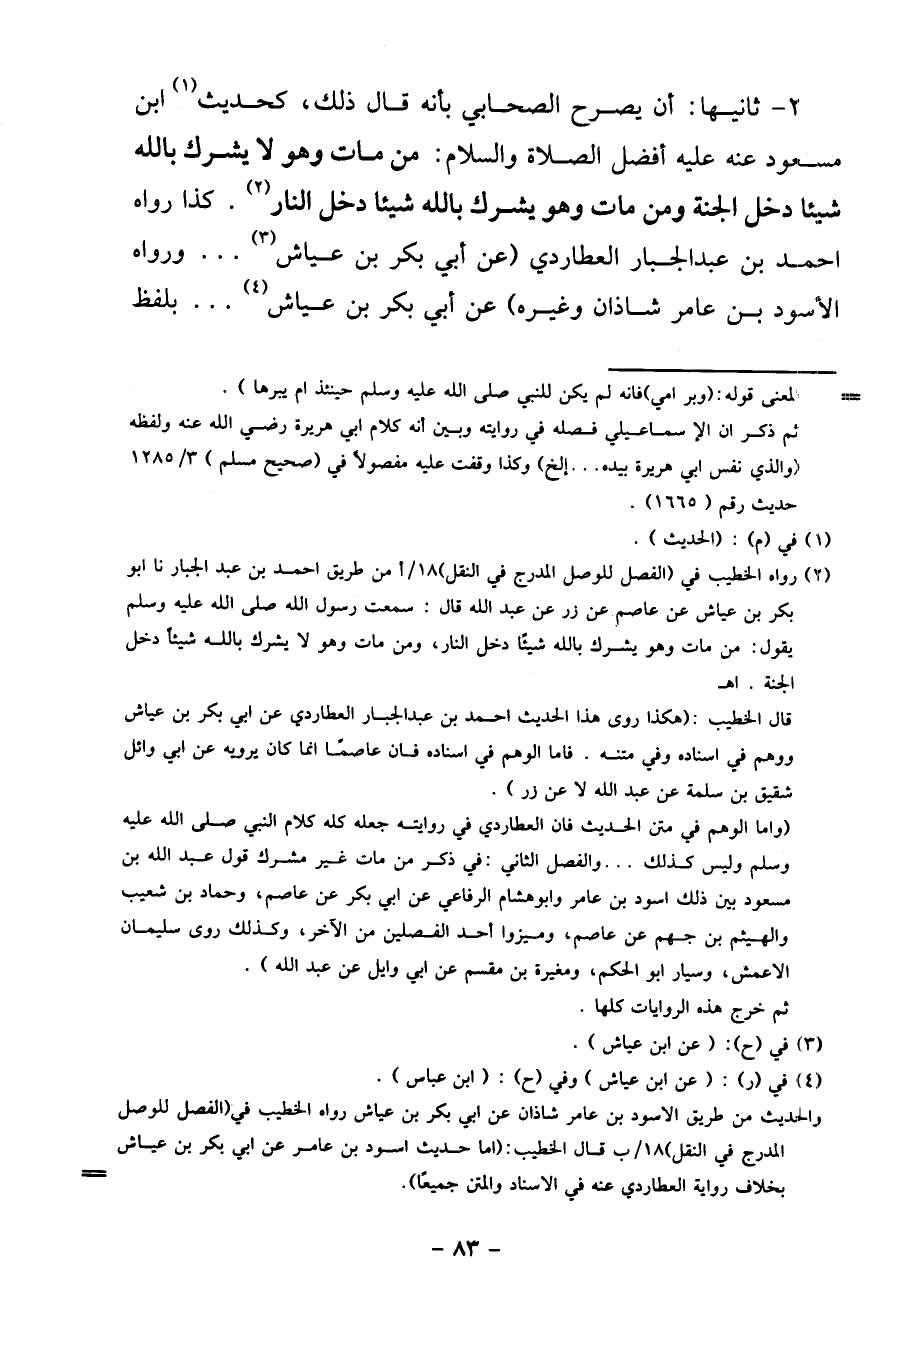 ٢- ثانيها: أن يصرح الصحابي بأنه قال ذلك، كحديث(١) ابن
مسعود عنه عليه أفضل الصلاة والسلام: من مات وهو لا يشرك بالله
شيئا دخل الجنة ومن مات وهو يشرك بالله شيئا دخل النار(٢) . كذا رواه
احمد بن عبدالجبار العطاردي (عن أبي بكر بن عياش(٣) ... ورواه
الأسود بن عامر شاذان وغيره) عن أبي بكر بن عياش(٤) ... بلفظ
== لمعنى قوله:(وبر امي)فانه لم يكن للنبي صلى الله عليه وسلم حينئذ ام يبرها ) .
ثم ذكر ان الإ سماعيلي فصله في روايته وبين أنه كلام ابي هريرة رضي الله عنه ولفظه
(والذي نفس ابي هريرة بيده...إلخ) وكذا وقفت عليه مفصولاً في (صحيح مسلم ) ٣/ ١٢٨٥
حديث رقم ( ١٦٦٥) .
(١) في (م) : (الحديث ) .
(٢) رواه الخطيب في (الفصل للوصل المدرج في النقل)١٨/أ من طريق احمد بن عبد الجبار نا ابو
بكر بن عياش عن عاصم عن زر عن عبد الله قال : سمعت رسول الله صلى الله عليه وسلم
يقول: من مات وهو يشرك بالله شيئًا دخل النار، ومن مات وهو لا يشرك بالله شيئاً دخل
الجنة . اهـ
قال الخطيب :(هكذا روى هذا الحديث احمد بن عبدالجبار العطاردي عن ابي بكر بن عياش
ووهم في اسناده وفي متنه . فاما الوهم في اسناده فان عاصمًا انما كان يرويه عن ابي وائل
شقيق بن سلمة عن عبد الله لا عن زر ) .
(واما الوهم في متن الحديث فان العطاردي في روايته جعله كله كلام النبي صلى الله عليه
وسلم وليس كذلك ...والفصل الثاني :في ذكر من مات غير مشرك قول عبد الله بن
مسعود بين ذلك اسود بن عامر وابوهشام الرفاعي عن ابي بكر عن عاصم، وحماد بن شعيب
والهيثم بن جهم عن عاصم، وميزوا أحد الفصلين من الآخر، وكذلك روى سليمان
الاعمش، وسيار ابو الحكم، ومغيرة بن مقسم عن ابي وايل عن عبد الله ) .
ثم خرج هذه الروايات كلها .
(٣) في (ح): ( عن ابن عياش ) .
(٤) في (ر) : ( عن ابن عياش ) وفي (ح) : ( ابن عباس ) .
والحديث من طريق الاسود بن عامر شاذان عن ابي بكر بن عياش رواه الخطيب في(الفصل للوصل
المدرج في النقل)١٨/ب قال الخطيب:(اما حديث اسود بن عامر عن ابي بكر بن عياش
بخلاف رواية العطاردي عنه في الاسناد والمتن جميعًا). ==
- ٨٣ -